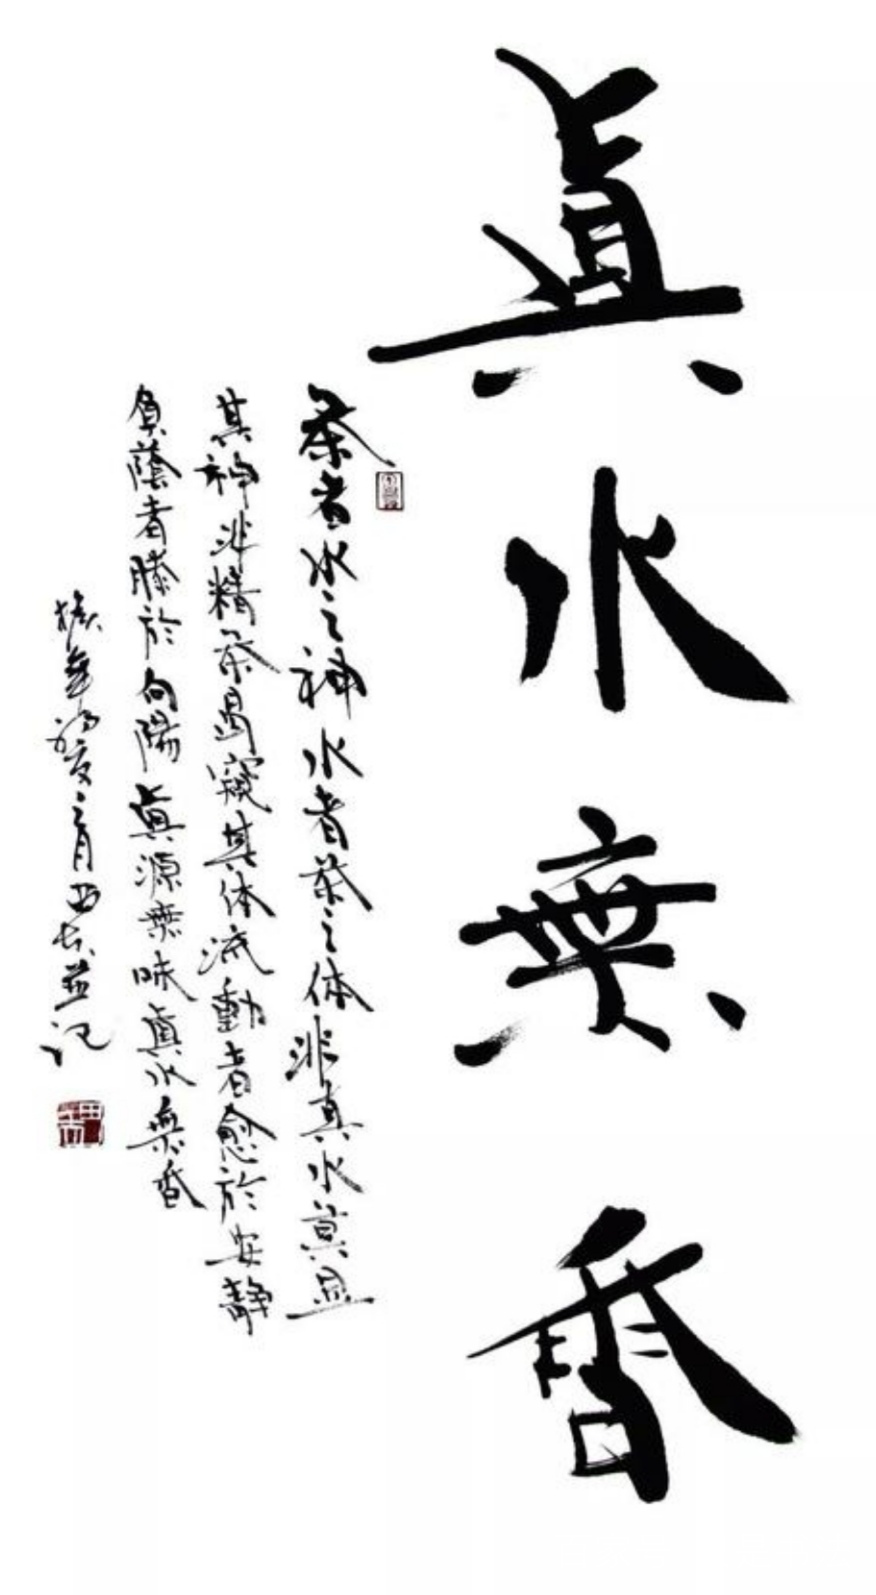 真水無香
茶者水之神水者茶之体非真水莫显
其神非精茶曷窥其体流動者愈於安靜
負蔭者勝於向陽真源無味真水無香
西 並記